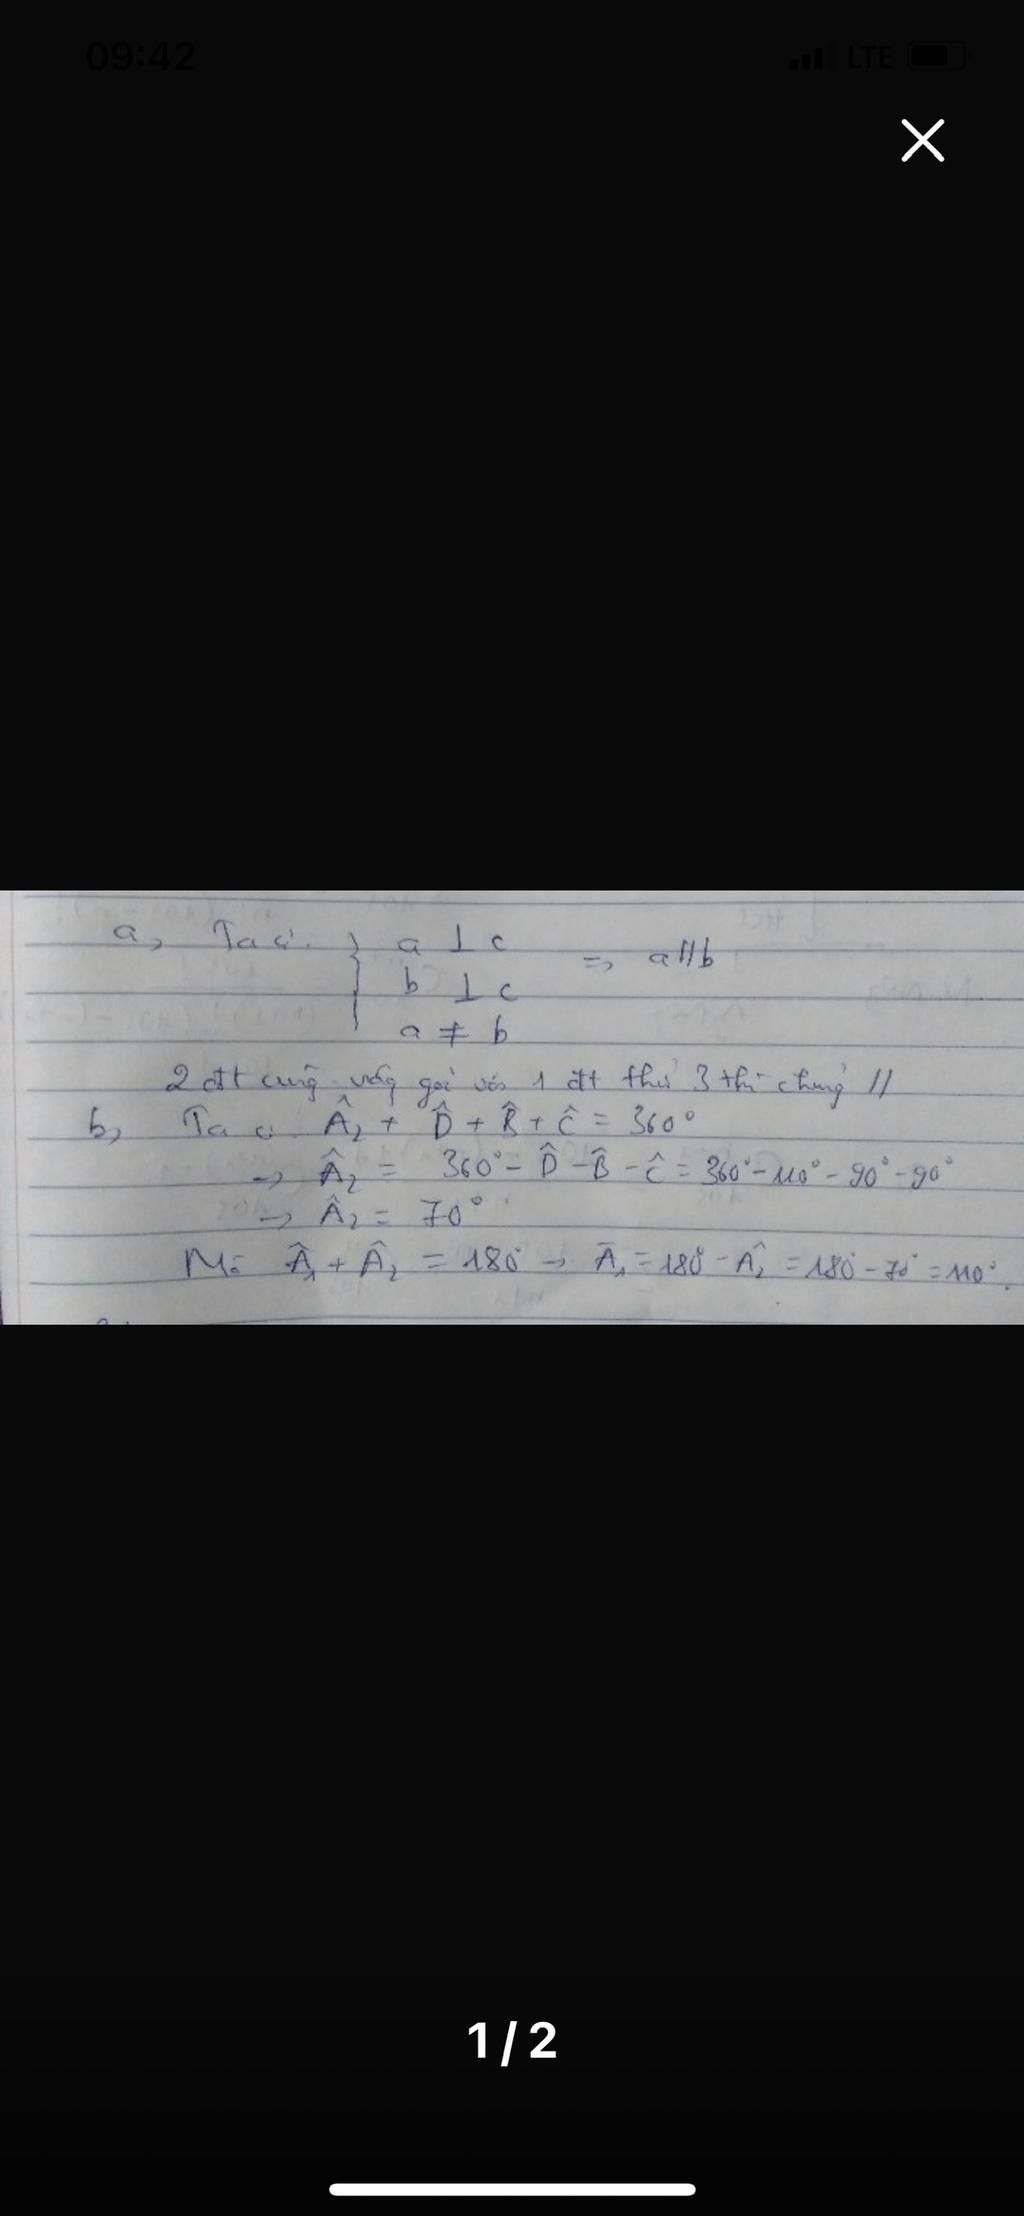 09:42
LTE
a, Ta có: { a ⊥ c
b ⊥ c
a ≠ b
=> a//b
2 đt cùng vuông góc với 1 đt thứ 3 thì chúng //
b, Ta có Â₂ + D̂ + B̂ + Ĉ = 360°
-> Â₂ = 360° - D̂ - B̂ - Ĉ = 360° - 110° - 90° - 90°
-> Â₂ = 70°
Mà Â₁ + Â₂ = 180° -> Â₁ = 180° - Â₂ = 180° - 70° = 110°.
1/2